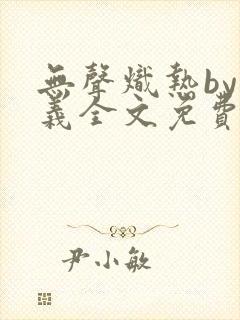 無聲熾熱by
義全文免費
尹小敏